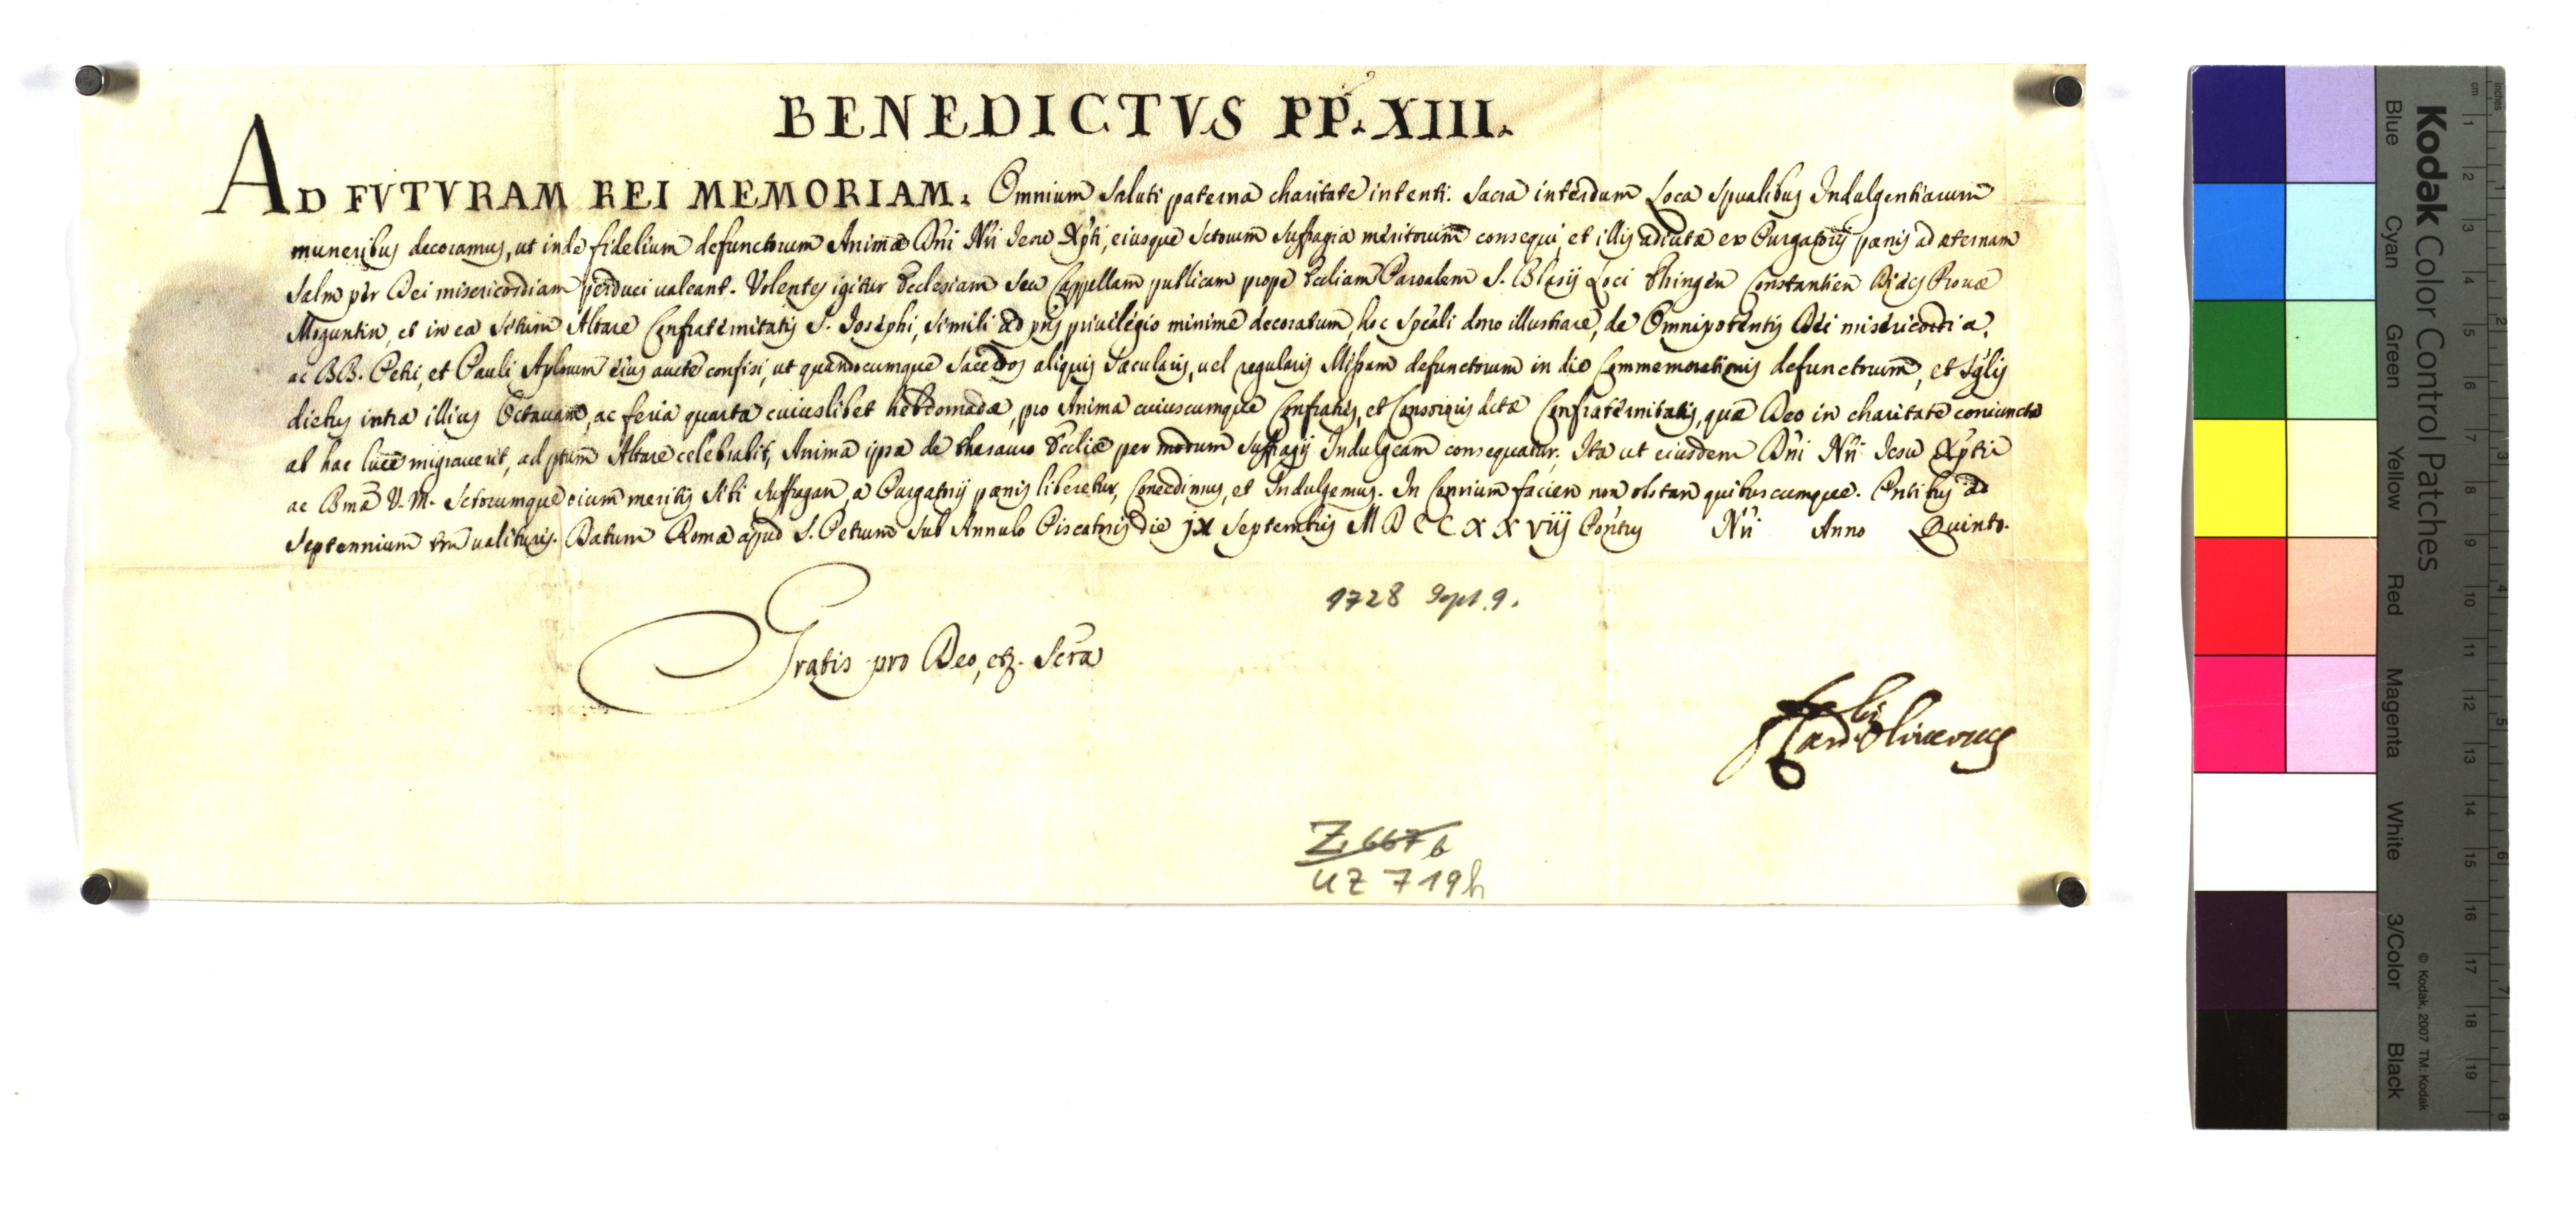 BENEDICTVS PP. XIII.
AD FVTVRAM REI MEMORIAM. Omnium Saluti paterna charitate intenti. Sacra interdum Loca Spualibus Indulgentiarum
muneribus decoramus, ut inde fidelium defunctorum Animæ Dñi Nri Jesu Xpti, eiusque Sctorum Suffragia meritorum consequi, et illis adiutæ ex Purgatorij pœnis ad æternam
Salm per Dei misericordiam perduci valeant. Volentes igitur Ecclesiam seu Cappellam publicam prope Eccliam Paroalem S. Blasij Loci Thingen Constantien Diæcs Prouæ
Moguntin, et in ea Situm Altare Confraternitatis S. Josephi, Simili ad pñs privilegio minime decoratum, hoc Spëali dono illustrare, de Omnipotentis Dei misericordia,
ac BB. Petri, et Pauli Aplorum eius aucte confisi, ut quandocumque Sacerdos aliquis Sæcularis, vel regularis Missam defunctorum in die Commemorationis defunctorum, et Sglis
diebus intra illius Octavam, ac feria quarta cuiuslibet hebdomadæ, pro Anima cuiuscumque Confratris, et Consororis dictæ Confraternitatis, quæ Deo in charitate coniuncta
ab hac luce migraverit, ad ptum Altare celebrabit, Anima ipsa de thesauro Eccliæ per modum Suffragij Indulgeam consequatur. Ita ut eiusdem Dñi Nri Jesu Xpti
ac Bmæ V. M. Sctorumque oium meritis Sibi Suffragan, a Purgatorij pœnis liberetur, Concedimus, et Indulgemus. In Conrium facien non obstan quibuscumque. Pntibus ad
Septennium tm valituris. Datum Romæ apud S. Petrum Sub Annulo Piscatoris die jx Septembris MDCCXXviij Pontus Nri Anno Quinto.
1728 Sept. 9.
Gratis pro Deo, etz. Scra
Card. Oliverius
Z. 667 b
UZ 719h
Kodak Color Control Patches
Blue Cyan Green Yellow Red Magenta White 3/Color Black
© Kodak, 2007 TM: Kodak
cm 1 2 3 4 5 6 7 8 9 10 11 12 13 14 15 16 17 18 19
inches 1 2 3 4 5 6 7 8